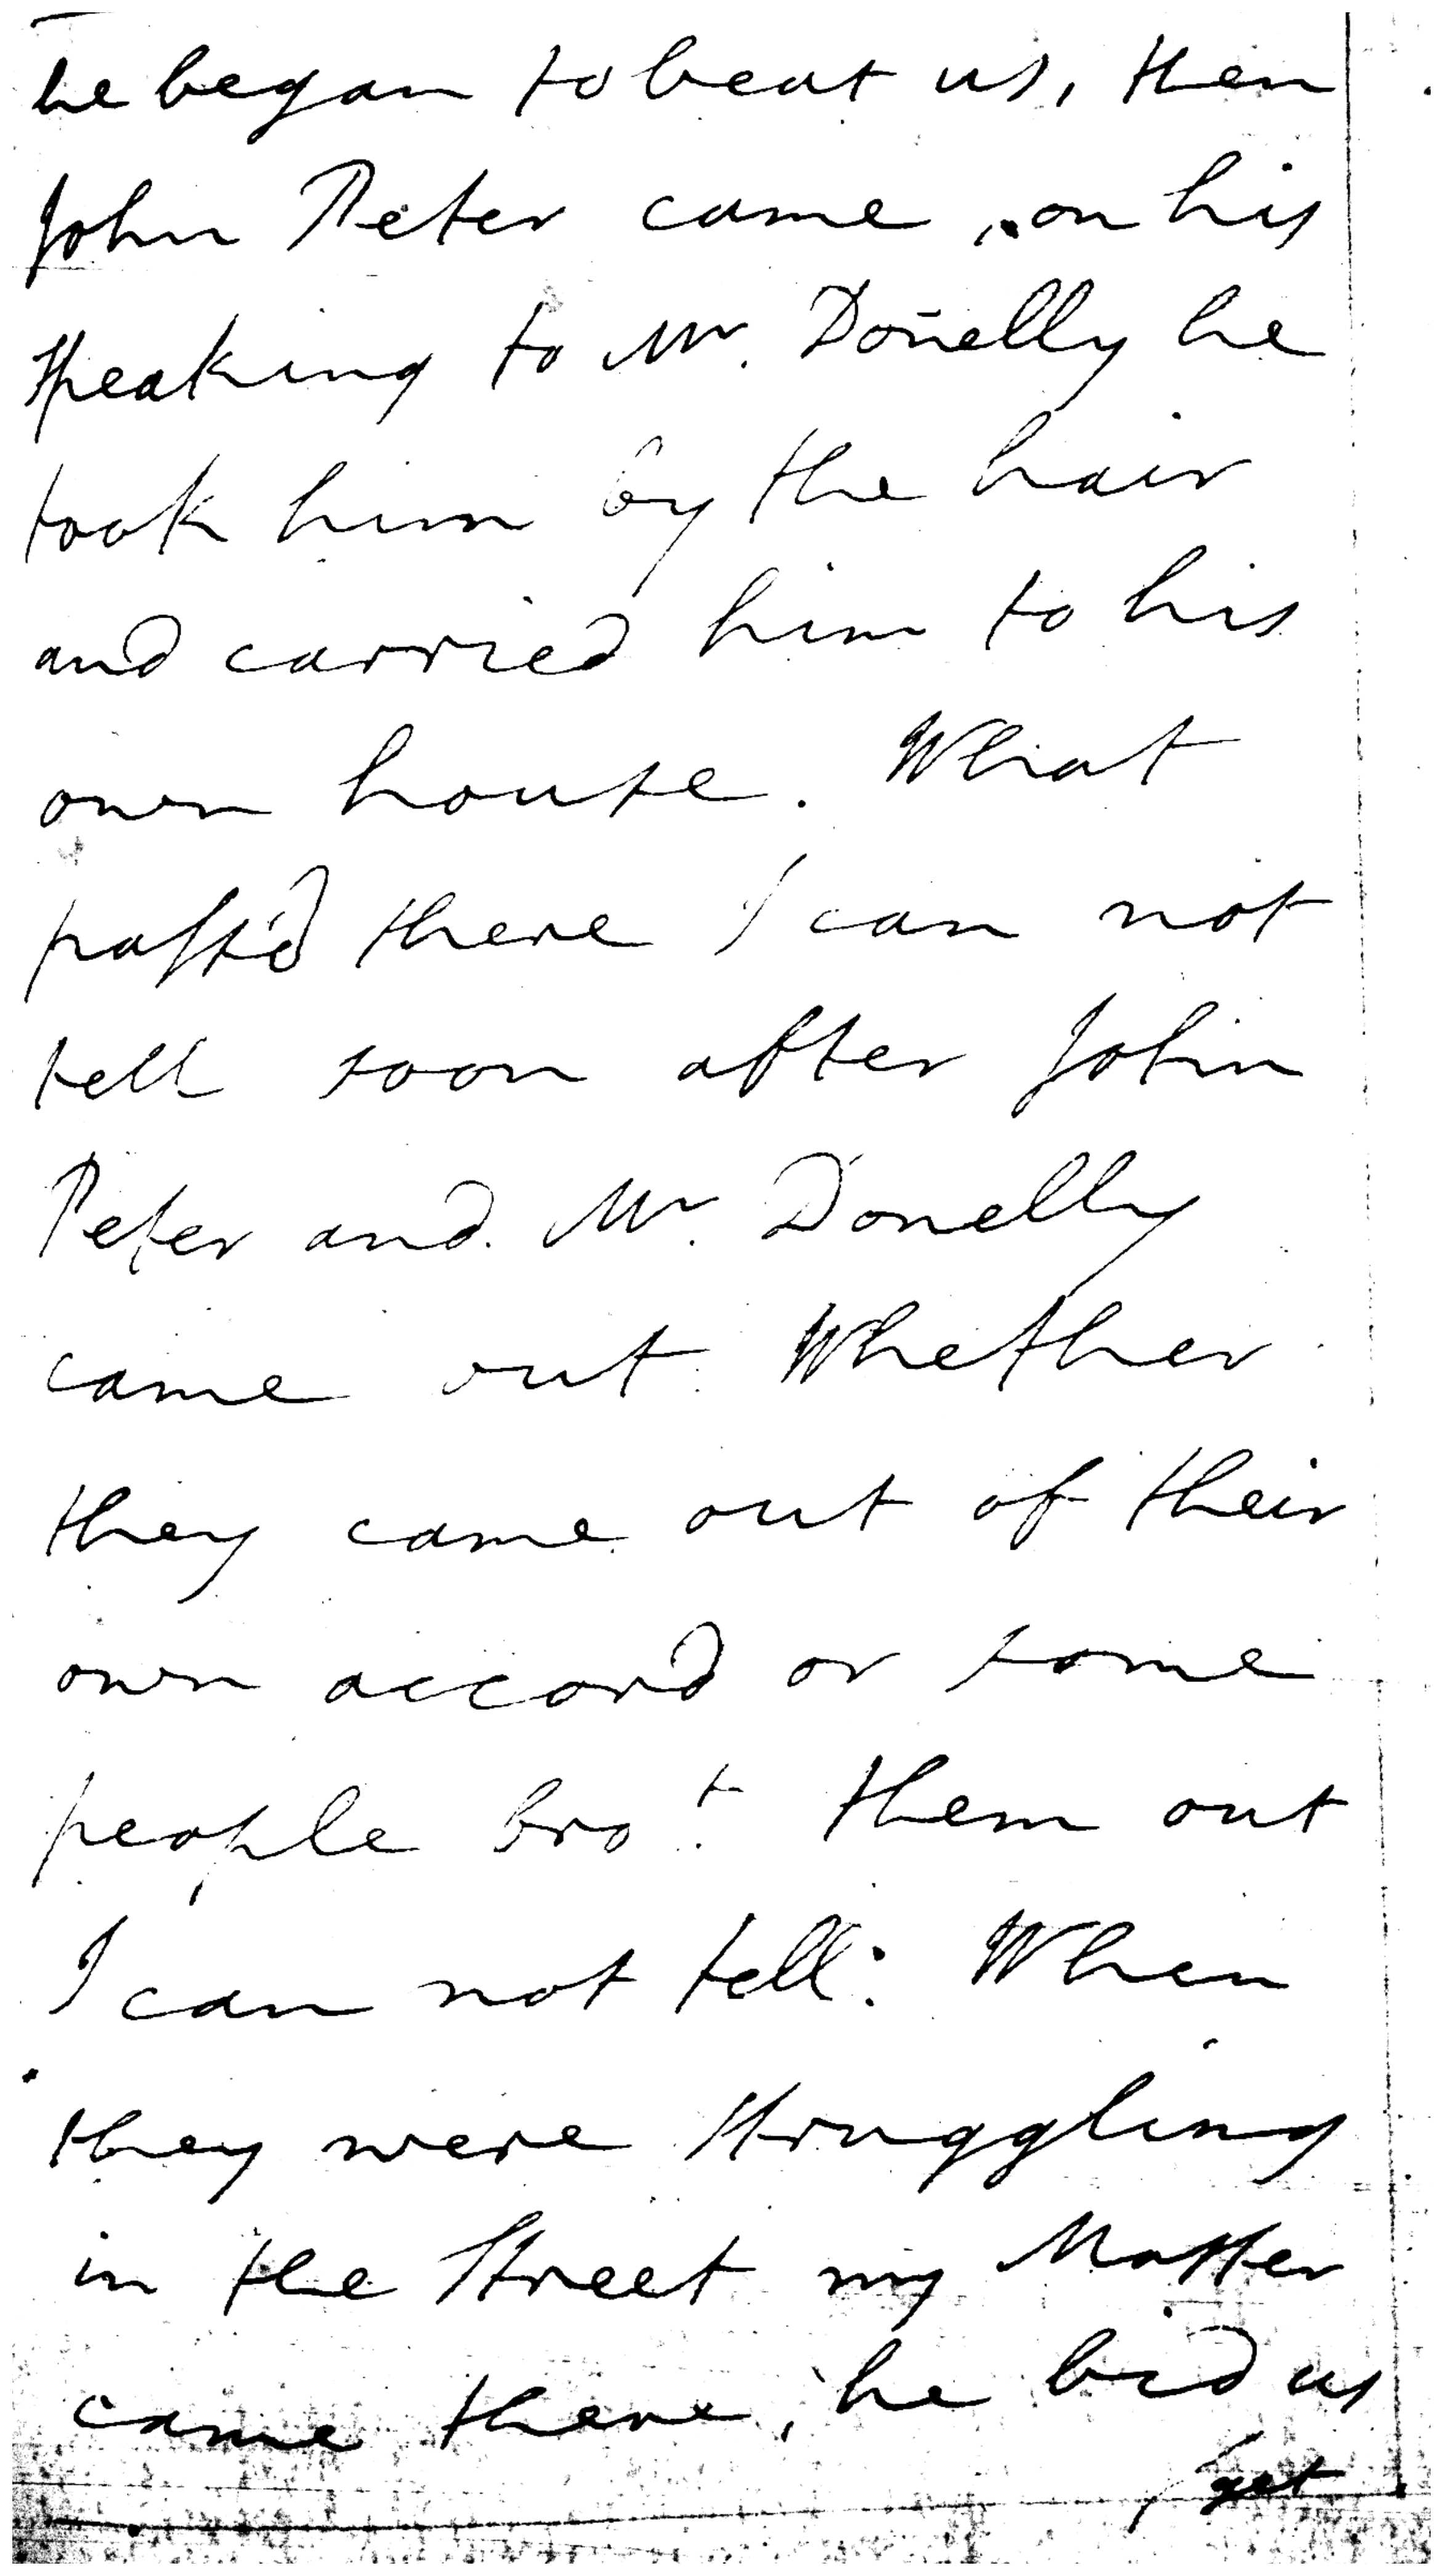 he began to beat us, then
John Peter came, on his
speaking to Mr. Donelly he
took him by the hair
and carried him to his
own house. What
pass'd there I can not
tell soon after John
Peter and Mr. Donelly
came out. Whether
they came out of their
own accord or some
people bro.t them out
I can not tell: When
they were struggling
in the Street my Master
came there, he bid us
get